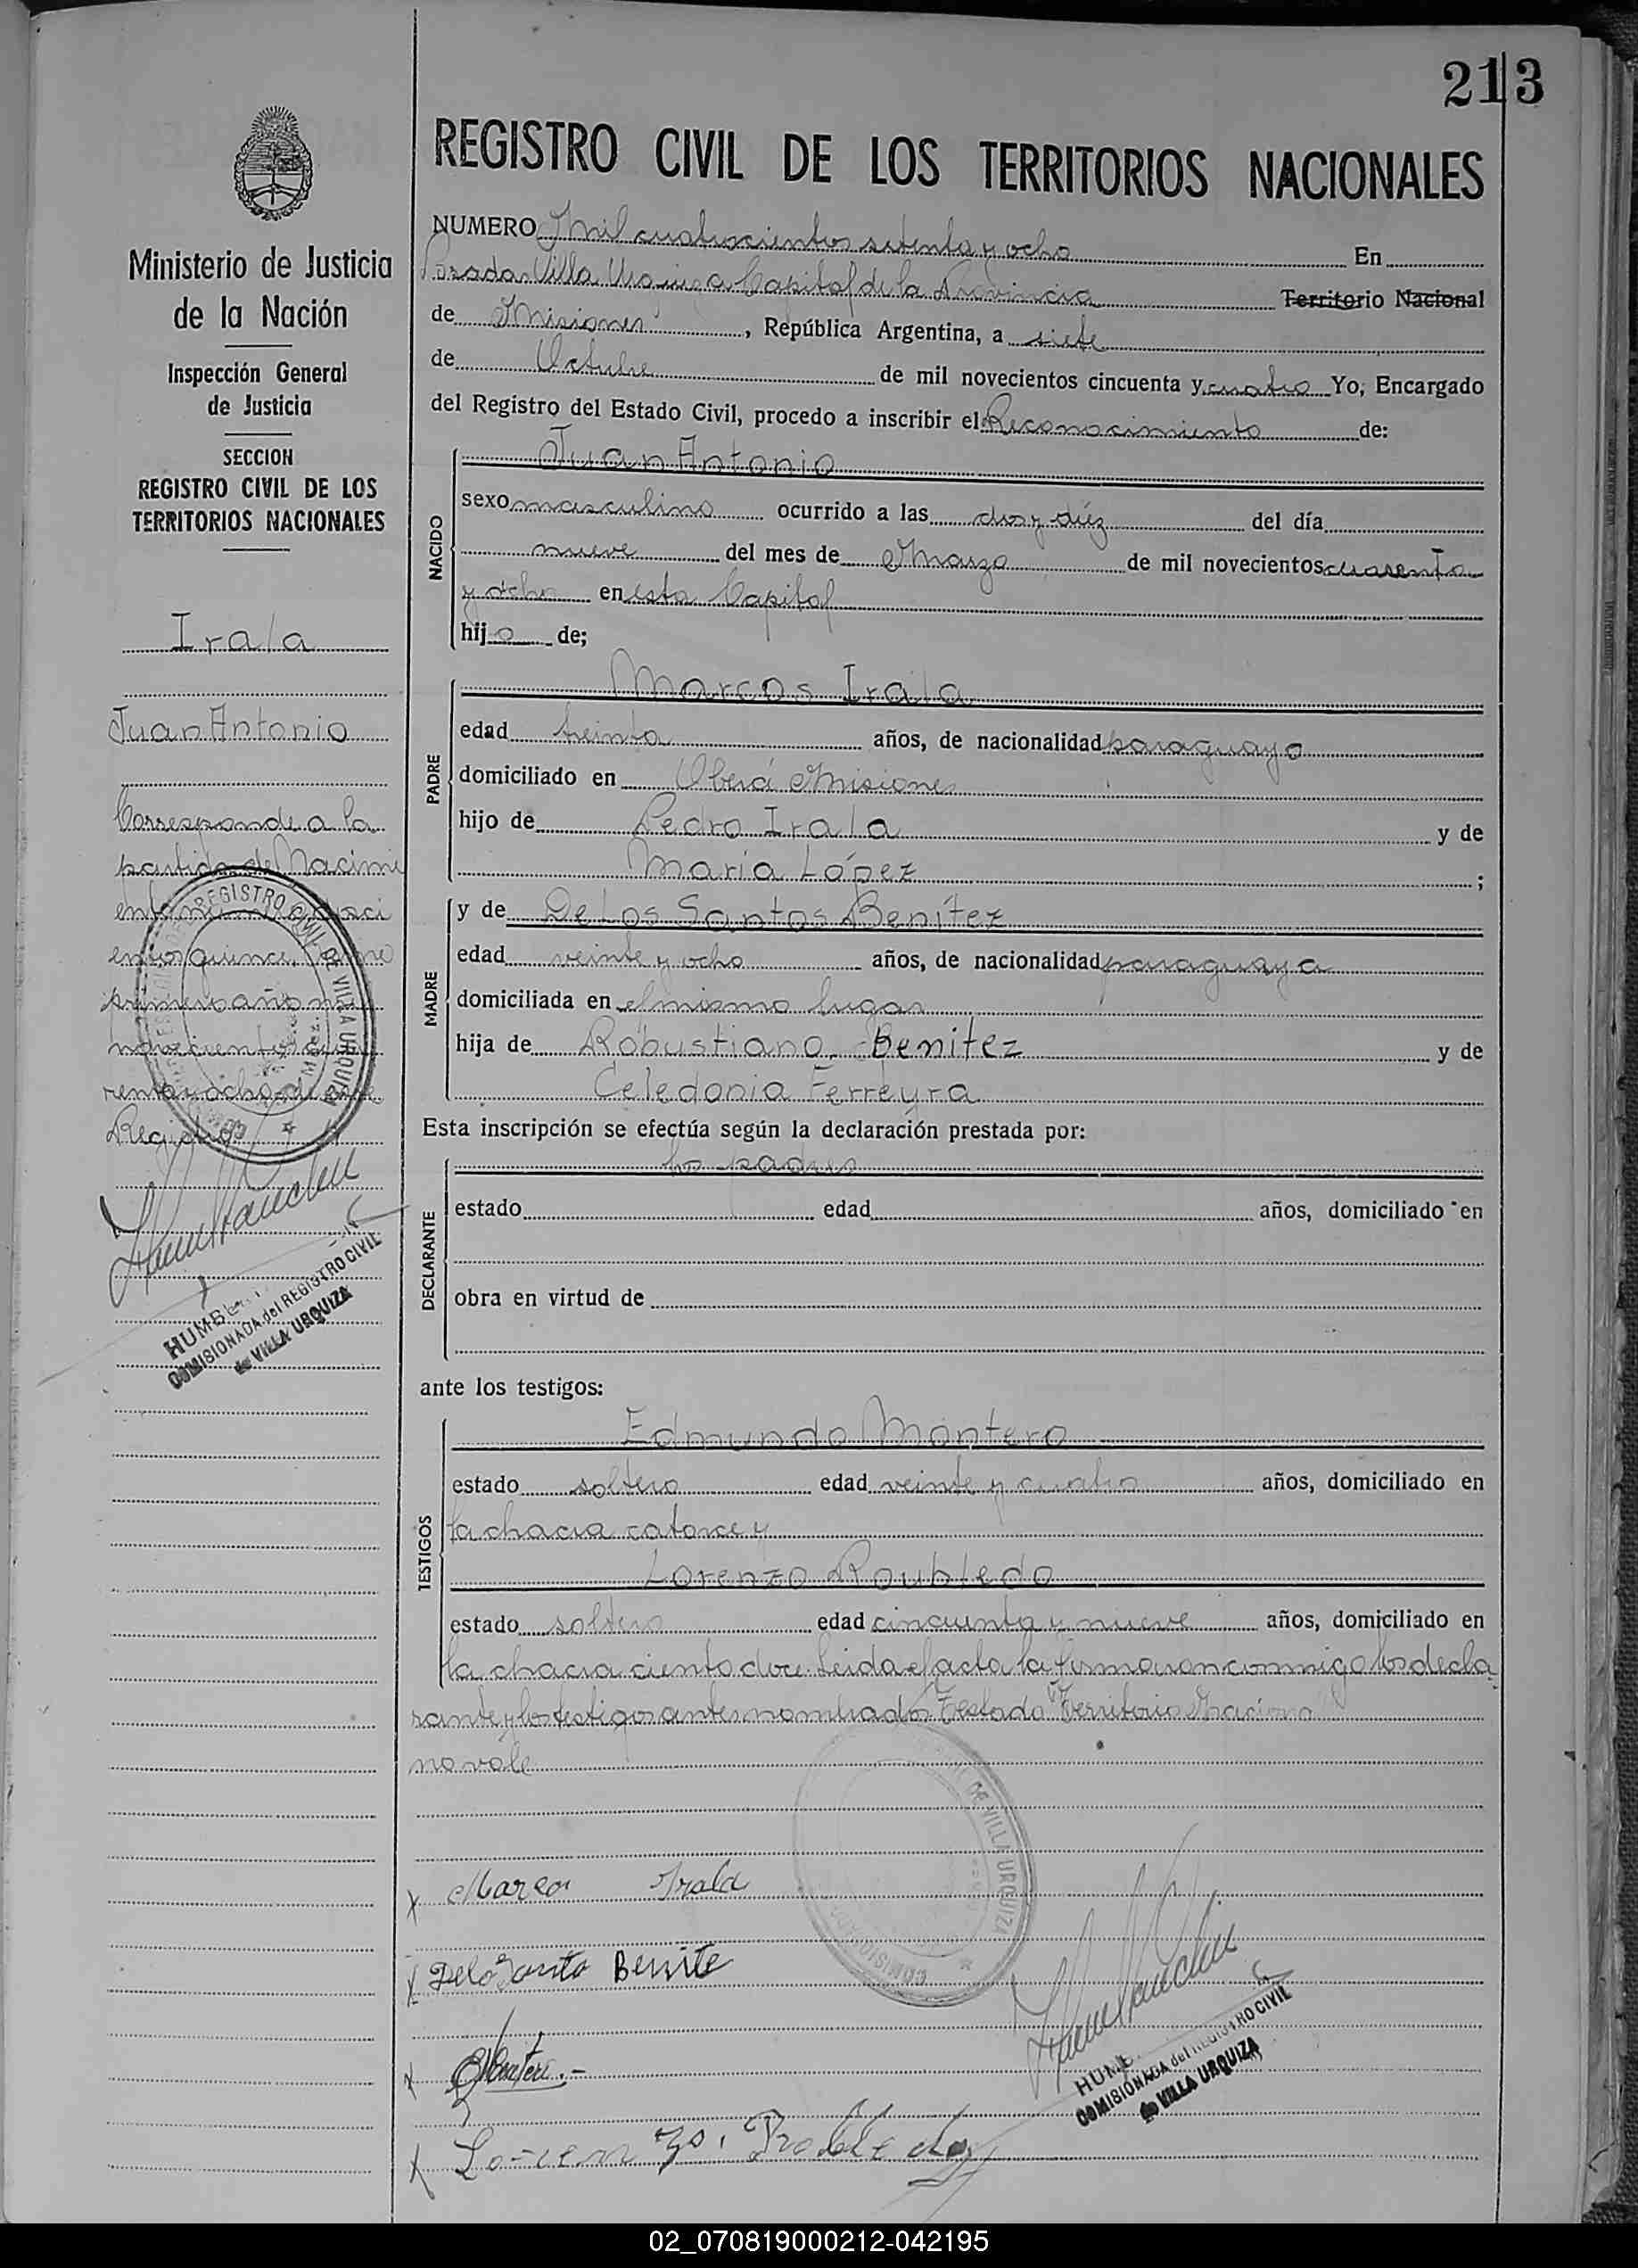 213
REGISTRO CIVIL DE LOS TERRITORIOS NACIONALES
Ministerio de Justicia
de la Nación
Inspección General
de Justicia
SECCION
REGISTRO CIVIL DE LOS
TERRITORIOS NACIONALES
Irala
Juan Antonio
Corresponde a la
partida de Nacimi
quince,
primero año mil
novecientos
renta y ocho de este
Registro
COMISIONADA del REGISTRO CIVIL
de VILLA URQUIZA
NUMERO Mil cuatrocientos setenta y ocho En
Posadas Villa Urquiza Capital de la Provincia Territorio Nacional
de Misiones, República Argentina, a siete
de Octubre de mil novecientos cincuenta y cuatro Yo, Encargado
del Registro del Estado Civil, procedo a inscribir el Reconocimiento de:
NACIDO
Juan Antonio
sexo masculino ocurrido a las diez y diéz del día
nueve del mes de Marzo de mil novecientos cuarenta
y ocho en esta Capital
hijo de;
PADRE
Marcos Irala
edad treinta años, de nacionalidad paraguayo
domiciliado en Oberá Misiones
hijo de Pedro Irala y de
María López ;
MADRE
y de De Los Santos Benítez
edad veinte y ocho años, de nacionalidad paraguaya
domiciliada en el mismo lugar
hija de Robustiano Benitez y de
Celedonia Ferreyra
Esta inscripción se efectúa según la declaración prestada por:
DECLARANTE
los padres
estado edad años, domiciliado en
obra en virtud de
ante los testigos:
TESTIGOS
Edmundo Montero
estado soltero edad veinte y cuatro años, domiciliado en
la chacra catorce y
Lorenzo Roubledo
estado soltero edad cincuenta y nueve años, domiciliado en
la chacra ciento doce. Leida el acta la firmaron conmigo los decla
rante y los testigos antes nombrados Testado "Territorio Naciona"
no vale
Marcos Irala
Delosanto Benite
EMontero.-
Lorenzo Robledo
COMISIONADA del REGISTRO CIVIL
de VILLA URQUIZA
02_070819000212-042195